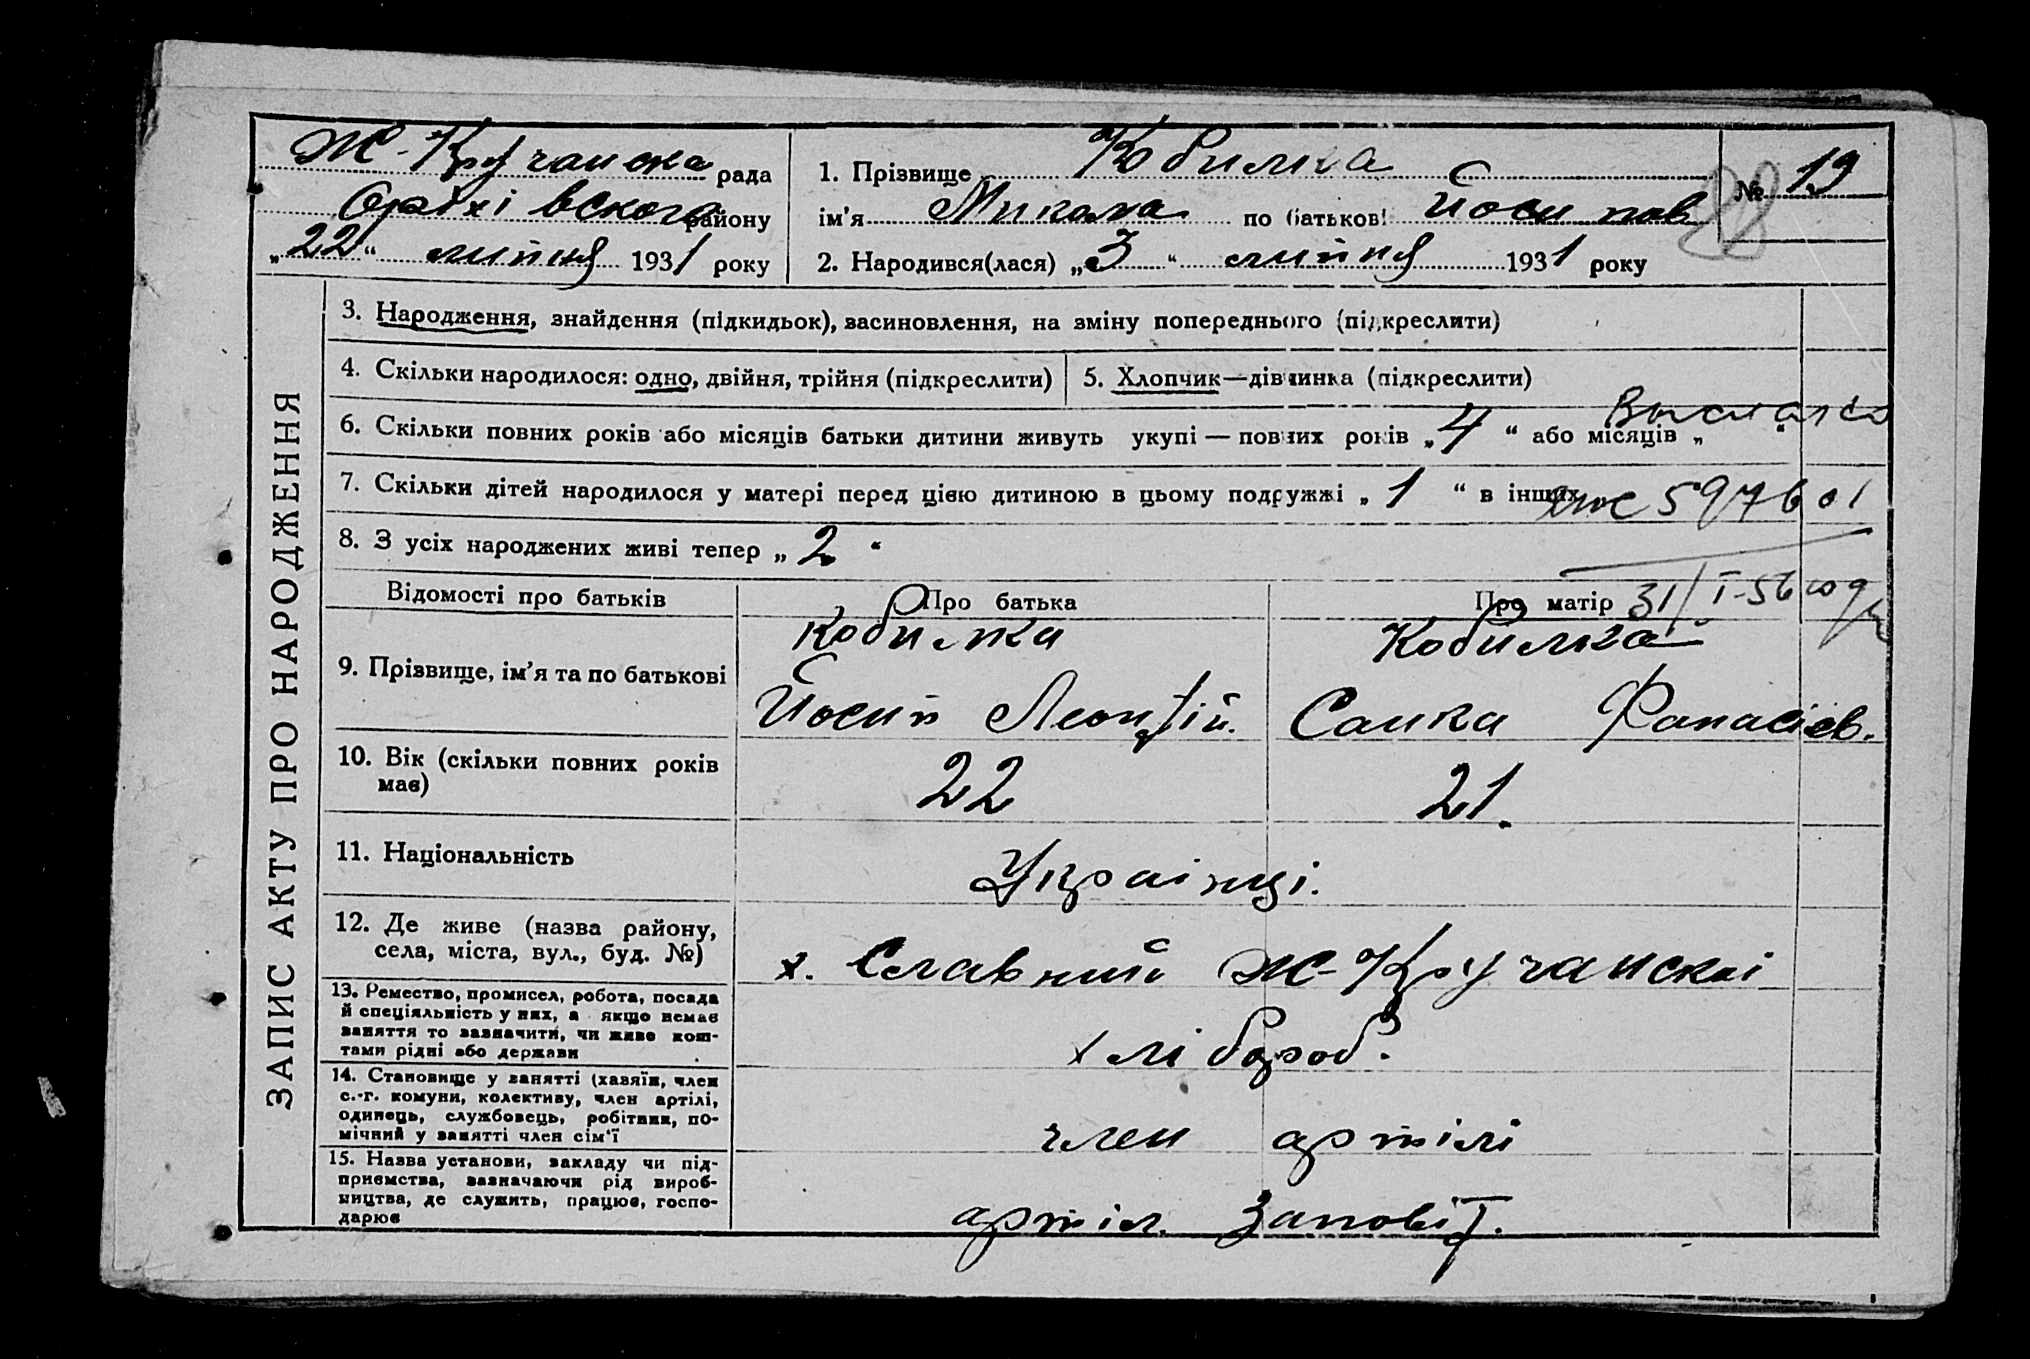 Ж-Кручанска рада
Оріхівского району
„22“ липня 1931 року
1. Прізвище Кобилка
ім’я Микола по батькові Йосипов
2. Народився(лася) „3“ липня 1931 року
№ 19
28
ЗАПИС АКТУ ПРО НАРОДЖЕННЯ
3. Народження, знайдення (підкидьок), засиновлення, на зміну попереднього (підкреслити)
4. Скільки народилося: одно, двійня, трійня (підкреслити)
5. Хлопчик—дівчинка (підкреслити)
6. Скільки повних років або місяців батьки дитини живуть укупі — повних років „4“ або місяців „ “
7. Скільки дітей народилося у матері перед цією дитиною в цьому подружжі „1“ в інших
597601
8. З усіх народжених живі тепер „2“
31/I-56
Відомості про батьків
Про батька
Про матір
9. Прізвище, ім’я та по батькові
Кобилка
Йосип Леонтій.
Кобилка
Санка Фанасієв.
10. Вік (скільки повних років
має)
22
21.
11. Національність
Українці.
12. Де живе (назва району,
села, міста, вул., буд. №)
х. Славний Ж-Кручанскі
13. Ремество, промисел, робота, посада
й спеціяльність у них, а якщо немає
заняття то зазначити, чи живе кош-
тами рідні або держави
хлібороб.
14. Становище у занятті (хазяїн, член
с.-г. комуни, колективу, член артілі,
одинець, службовець, робітник, по-
мічний у занятті член сім’ї
член артілі
15. Назва установи, закладу чи під-
приємства, зазначаючи рід вироб-
ництва, де служить, працює, госпо-
дарює
артіл. Заповіт.